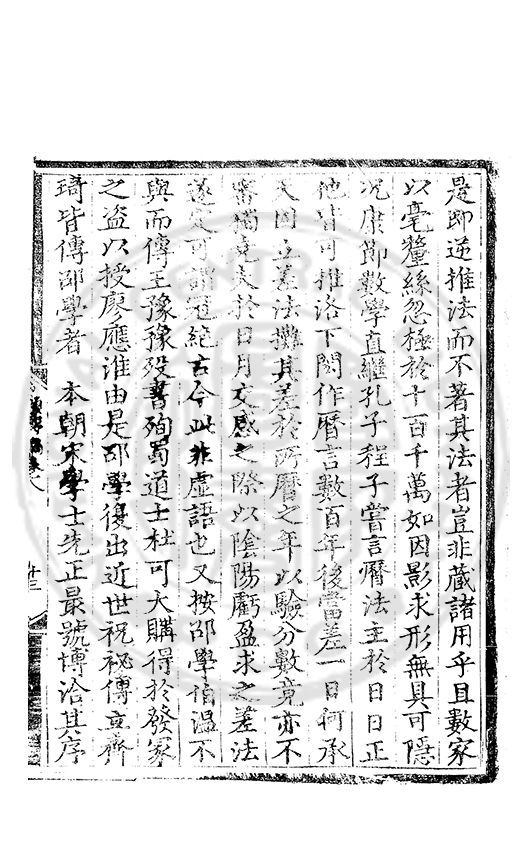 是即逆推法而不著其法者豈非藏諸用乎且數家
以毫釐絲忽極於十百千萬如因影求形無具可隱
况康節數學直繼孔子程子嘗言曆法主於日日正
他皆可推洛下閎作曆言數百年後當差一日何承
天因立差法攤其差於所曆之年以驗分數竟亦不
審獨堯夫於日月交感之際以陰陽虧盈求之差法
遂定可謂冠絶古今此非虛語也又按邵學伯溫不
與而傳王豫豫殁書殉蜀道士杜可大購得於發冢
之盜以授廖應淮由是邵學復出近世祝祕傳立齊
琦皆傳邵學者　本朝宋學士先正最號博洽其序
卷八
廿三